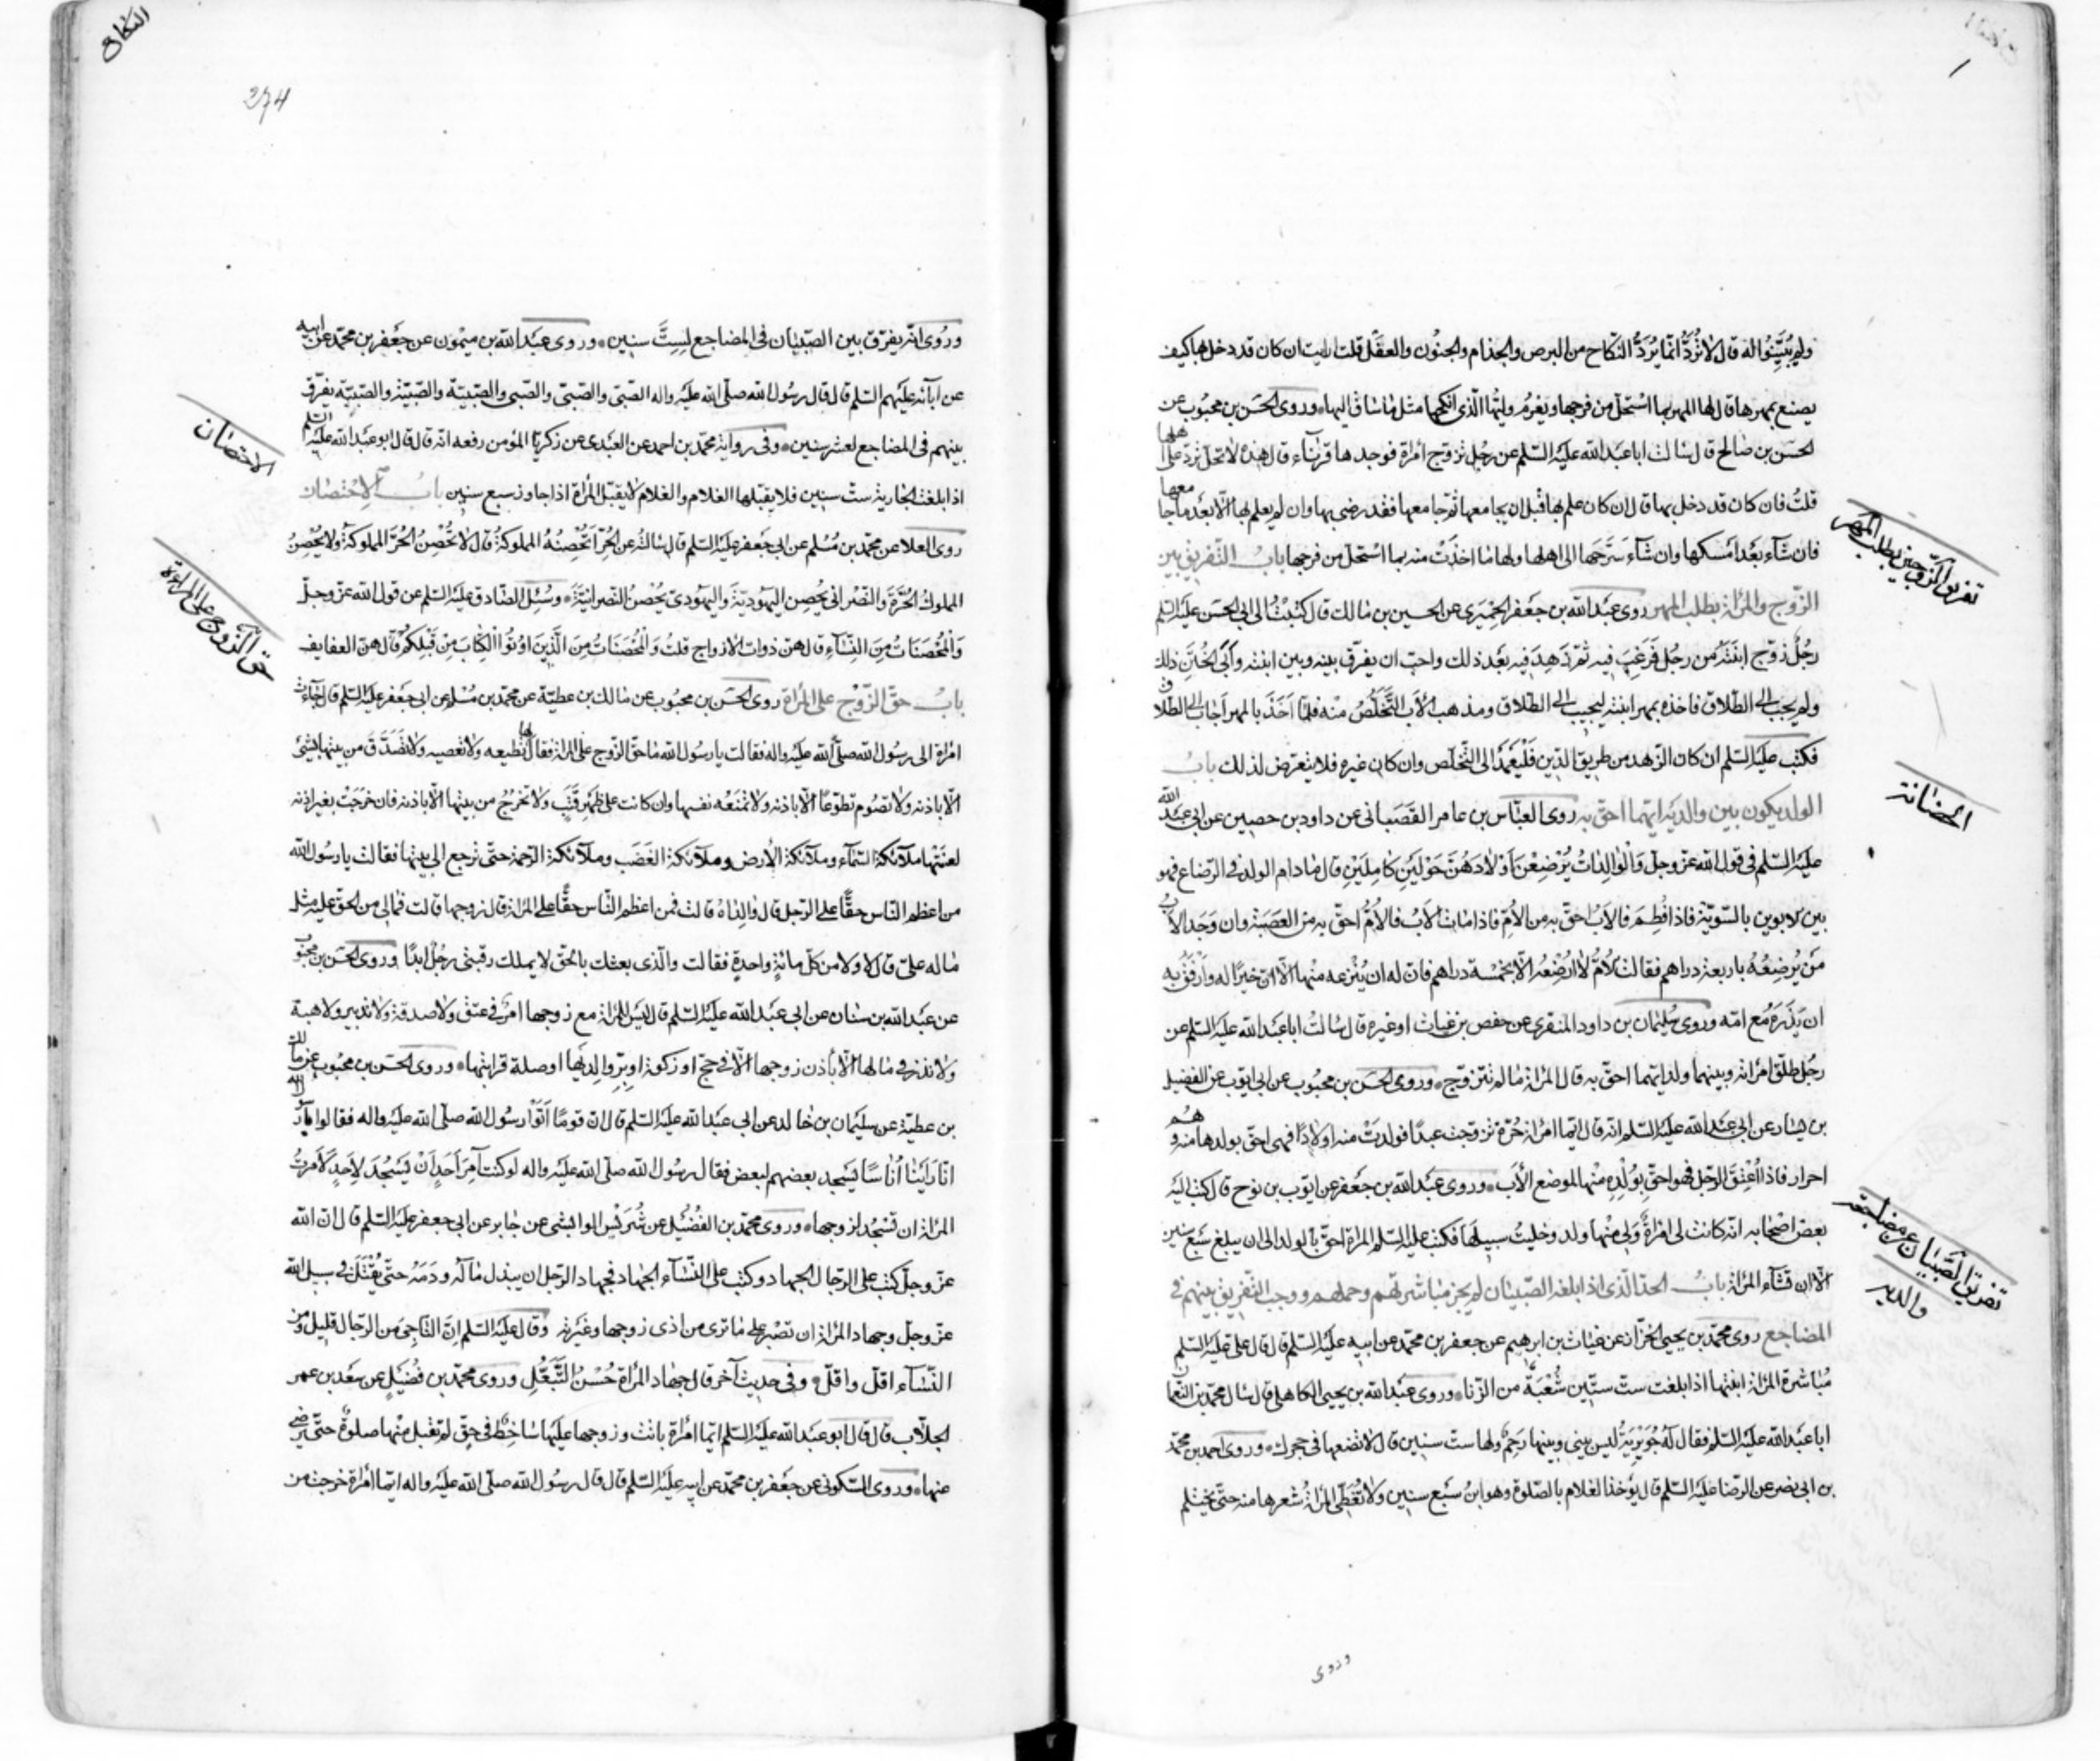 ولم يُبَيِّنُوا له قال لا تُرَدُّ انّما يُرَدُّ النّكاح من البرص والجذام والجنُون والعفَل قلت ارايت ان كان قد دخل بها كيف
يصنع بمهرها قال لها المهر بما استحلّ من فرجها ويغرُم وليّها الّذى انكحها مثل ما ساق اليها وروى الحَسَن بن محبُوب عن
الحسَن بن صالح قال سالت ابا عبد الله عليه السّلم عن رجُل تزوّج امراة فوجد بها قرنآء قال هذه لا تحبل تردّ على اهلها
قلتُ فان كان قد دخل بها قال ان كان علم بها قبل ان يجامعها ثمّ جامعها فقد رضى بها وان لم يعلم بها الّا بعد ما جامعها
فان شآء بعدُ امسكها وان شآء سَرَّحَها الى اهلها ولها ما اخذت منه بما استحلّ من فرجها باب التّفريق بين
الزّوج والمراة بطلب المهر روى عبد الله بن جعفر الحِميَرى عن الحسين بن مالك قال كتبتُ الى ابى الحسَن عليه السّلم
رجُل زوّج ابنَتَه من رجُل فَرَغِبَ فيه ثمّ زَهِدَ فيه بعد ذلك واحبّ ان يفرّق بينه وبين ابنته وأبَى الخُتَن ذلك
ولم يجب الى الطّلاق فاخذه بمهر ابنته ليجيب الى الطّلاق ومذهب الأب التَّخَلُّصُ منه فلمّا اَخَذَ بالمهر اجاب الى الطّلاق
فكتب عليه السّلم ان كان الزّهد من طريق الدّين فَلْيَعْمَد الى التّخلّص وان كان غيره فلا يتعرّض لذلك باب
الولد يكون بين والديه ايّهما احقّ به روى العبّاس بن عامر القَصَبانى عن داود بن حصين عن ابى عبد الله
عليه السّلم فى قول الله عزّ وجلّ وَالْوالِداتُ يُرْضِعْنَ اَوْلادَهُنَّ حَوْلَيْنِ كامِلَيْنِ قال ما دام الولد فى الرّضاع فهو
بين الابوين بالسّويّة فاذا فُطِمَ فالاَبُ احقّ به من الاُمّ فاذا مات الاَبُ فالاُمُّ احقّ به من العَصَبَة وان وَجَدَ الاب
مَن يُرضِعُهُ باربعة دراهم فقالت الاُمُّ لا اُرضِعُه الّا بخمسة دراهم فانّ له ان يَنْزعه منها الّا انّ خيرًا له وَاَرْفَقُ به
ان يَذَرَهُ مع امّه وروى سُليمان بن داود المنقرى عن حفص بن غياث او غيره قال سالتُ ابا عبد الله عليه السّلم عن
رجُل طلّق امراته وبينهما ولد ايّهما احقّ به قال المراة ما لم تتزوّج وروى الحَسَن بن محبُوب عن ابى ايّوب عن الفضيل
بن يسار عن ابى عبد الله عليه السّلم انّه قال ايّما امراة حُرّة تزوّجت عبدًا فولدَتْ منه اولادًا فهى احقّ بولدها منه وهُم
احرار فاذا اُعْتِقَ الرّجل فهو احقّ بِوُلْدِهِ منها لموضع الأب وروى عبد الله بن جعفر عن ايّوب بن نوح قال كتب اليه
بعض اصحابه انّه كانت لى امراةٌ وَلى منها ولد وخليتُ سبيلها فكتب عليه السّلم المراة احقّ بالولد الى ان يبلغ سَبْع سنين
الّا ان تشآء المراة بابُ الحدّ الّذى اذا بلغه الصّبيان لم يجز مباشرتهم وحملهم ووجب التّفريق بينهم فى
المضاجع روى محمّد بن يحيى الخزّاز عن غياث بن ابرهيم عن جعفر بن محمّد عن ابيه عليه السّلم قال قال علىّ عليه السّلم
مُباشرة المراة ابنتها اذا بلغت ستّ سنين شُعْبَة من الزّنا وروى عبد الله بن يحيى الكاهلى قال سال محمّد بن النّعمان
ابا عبد الله عليه السّلم فقال له جُوَيْرِيَةٌ ليس بينى وبينها رَحِم ولها ستّ سنين قال لا تضعها فى حجرك وروى احمد بن محمّد
بن ابى نصر عن الرّضا عليه السّلم قال يُؤخذ الغلام بالصّلوة وهو ابن سَبْع سنين ولا تُغَطّى المراةُ شعرها منه حتّى يحتلم
وروى
تفريق الزّوجين بطلب المهر
الحضانة
تفريق الصّبيان عن مضاجعة
والديه
النكاح
274
وروى انّه يفرّق بين الصّبيان فى المضاجع لِستّ سنين وروى عبد الله بن ميمُون عن جعفر بن محمّد عن ابيه
عن آبآئه عليهم السّلم قال قال رسُول الله صلّى الله عليه واله الصّبىّ والصّبىّ والصّبى والصّبيّة والصّبيّة والصّبيّة يفرّق
بينهم فى المضاجع لعشر سنين وفى رواية محمّد بن احمد عن العُبَيدى عن زكريّا المؤمن رفعه انّه قال قال ابو عبد الله عليه السّلم
اذا بلغت الجارية ستّ سنين فلا يقبّلها الغلام والغلام لا يقبّل المراة اذا جاوز سبع سنين باب الاِحصان
روى العلا عن محمّد بن مُسْلم عن ابى جعفر عليه السّلم قال سالتُه عن الحُرّ اَتُحْصِنُهُ المملوكةُ قال لا تُحْصِنُ الحُرَّ المملوكةُ ولا يُحْصِنُ
المملوكُ الحُرَّةَ والنّصْرانى يُحْصِن اليهُوديّةَ واليهُودى يُحْصِنُ النّصرانيّةَ وسُئِلَ الصّادق عليه السّلم عن قول الله عزّ وجلّ
وَالْمُحْصَنَاتُ مِنَ النِّسَآءِ قال هنّ ذوات الازواج قلتُ وَالْمُحْصَنَاتُ مِنَ الَّذِينَ اُوتُوا الْكِتَابَ مِنْ قَبْلِكُمْ قال هنّ العفايف
بابُ حقّ الزّوْج على المراة روى الحَسَن بن محبُوب عن مالك بن عطيّة عن محمّد بن مُسْلم عن ابى جعفر عليه السّلم قال جاءت
امراة الى رسُول الله صلّى الله عليه واله فقالت يا رسُول الله ما حقّ الزّوج على المراة فقال لها تطيعه ولا تعصيه ولا تصَّدّق من بيتها بشىء
الّا باذنه ولا تصُوم تطوّعًا الّا باذنه ولا تمنَعُه نفسها وان كانت على ظَهر قَتَب ولا تخرُجُ من بيتها الّا باذنه فان خرَجَتْ بغير اذنه
لعنَتْها ملآئكة السّمآء وملآئكة الأرض وملآئكة الغَضَب وملآئكة الرّحمة حتّى ترجع الى بيتها فقالت يا رسُول الله
من اعظم النّاس حقًّا على الرّجل قال والداهُ قالت فمن اعظم النّاس حقًّا على المراة قال زوجها قالت فمالى من الحقّ عليه مثل
ما له علىّ قال لا ولا من كلّ مائةٍ واحدةٍ فقالت والّذى بعثك بالحقّ لا يملك رقبتى رجُلٌ ابدًا وروى الحَسَن بن محبُوب
عن عبد الله بن سنان عن ابى عبد الله عليه السّلم قال ليس للمراة مع زوجها امرٌ فى عتق ولا صدقة ولا تدبير ولا هبة
ولا نذر فى مالها الّا باذن زوجها الّا فى حجّ او زكوة او برّ والديها او صلة قرابتها وروى الحسَن بن محبُوب عن مالك
بن عطيّة عن سليمان بن خالد عن ابى عبد الله عليه السّلم قال انّ قومًا اَتَوْا رسُول الله صلّى الله عليه واله فقالوا يا رسول الله
انّا رَاَيْنا اُناسًا يَسْجد بعضهم لبعض فقال رسُول الله صلّى الله عليه واله لو كنت آمِرَ اَحَدٍ اَنْ يَسْجُدَ لِاَحَدٍ لَاَمَرتُ
المراة ان تسْجُد لزوجها وروى محمّد بن الفُضَيْل عن شُرَيْس الوابشى عن جابر عن ابى جعفر عليه السّلم قال انّ الله
عزّ وجلّ كتب على الرّجال الجهاد وكتب على النّسآء الجهاد فجهاد الرّجل ان يبذل مالَه ودَمَهُ حتّى يُقْتَلَ فى سبيل الله
عزّ وجلّ وجهاد المراة ان تصْبِر على ما ترى من اذى زوجها وغَيْرَته وقال عليه السّلم انّ النّاجِىَ من الرّجال قليل ومن
النّسآء اقلّ واقلّ وفى حديث آخر قال جهاد المراة حُسْنُ التّبَعُّلِ وروى محمّد بن فُضَيْلٍ عن سعْد بن عمر
الجلّاب قال قال ابو عبد الله عليه السّلم ايّما امراة باتت وزوجها عليها ساخِط فى حقّ لم تقبل منها صلوة حتّى يرضى
عنها وروى السّكونى عن جعفر بن محمّد عن ابيه عليه السّلم قال قال رسُول الله صلّى الله عليه واله ايّما امراة خرجت من
الاحصان
حق الزّوج على المراة